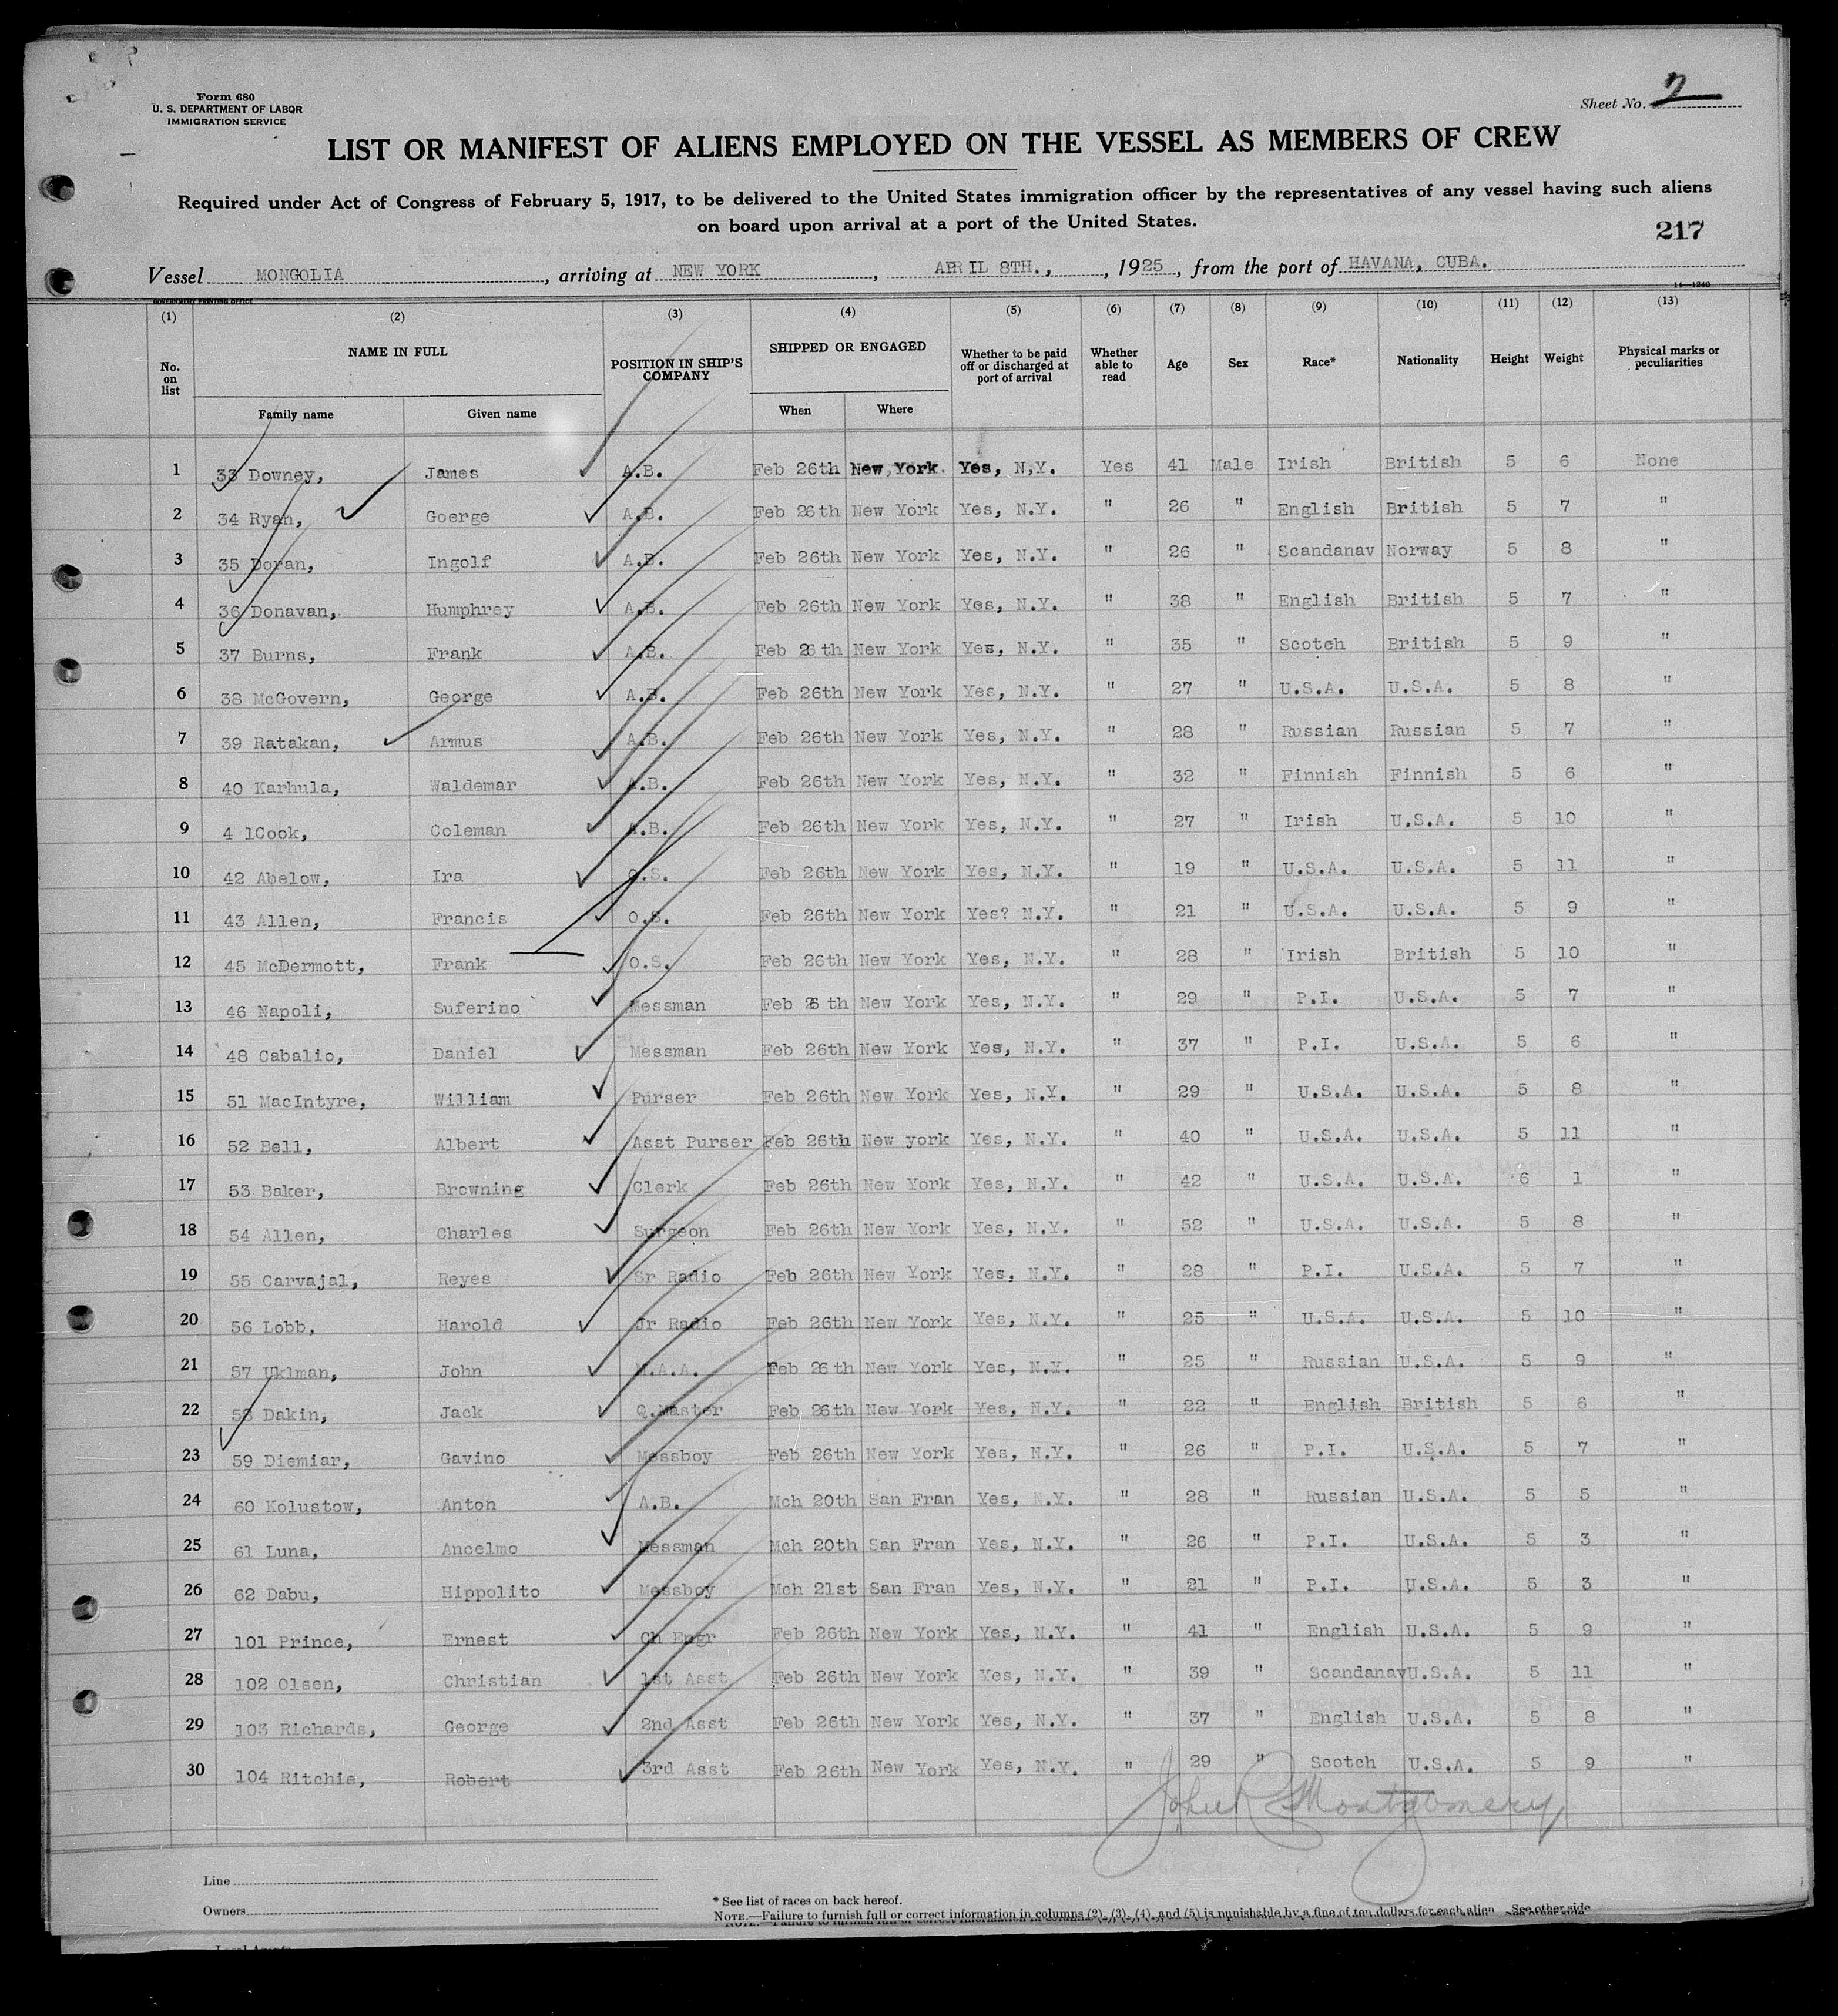 Form 680
U. S. DEPARTMENT OF LABOR
IMMIGRATION SERVICE
Sheet No. 2
LIST OR MANIFEST OF ALIENS EMPLOYED ON THE VESSEL AS MEMBERS OF CREW
Required under Act of Congress of February 5, 1917, to be delivered to the United States immigration officer by the representatives of any vessel having such aliens
on board upon arrival at a port of the United States.
217
Vessel MONGOLIA, arriving at NEW YORK, APRIL 8TH., 1925, from the port of HAVANA, CUBA.
GOVERNMENT PRINTING OFFICE 14—1240
(1) (2) (3) (4) (5) (6) (7) (8) (9) (10) (11) (12) (13)
No. on list NAME IN FULL POSITION IN SHIP'S COMPANY SHIPPED OR ENGAGED Whether to be paid off or discharged at port of arrival Whether able to read Age Sex Race* Nationality Height Weight Physical marks or peculiarities
Family name Given name When Where
1 33 Downey, James A.B. Feb 26th New York. Yes, N,Y. Yes 41 Male Irish British 5 6 None
2 34 Ryan, Goerge A.B. Feb 26th New York Yes, N.Y. " 26 " English British 5 7 "
3 35 Doran, Ingolf A.B. Feb 26th New York Yes, N.Y. " 26 " Scandanav Norway 5 8 "
4 36 Donavan, Humphrey A.B. Feb 26th New York Yes, N.Y. " 38 " English British 5 7 "
5 37 Burns, Frank A.B. Feb 26 th New York Yes, N.Y. " 35 " Scotch British 5 9 "
6 38 McGovern, George A.B. Feb 26th New York Yes, N.Y. " 27 " U.S.A. U.S.A. 5 8 "
7 39 Ratakan, Armus A.B. Feb 26th New York Yes, N.Y. " 28 " Russian Russian 5 7 "
8 40 Karhula, Waldemar A.B. Feb 26th New York Yes, N.Y. " 32 " Finnish Finnish 5 6 "
9 4 1Cook, Coleman A.B. Feb 26th New York Yes, N.Y. " 27 " Irish U.S.A. 5 10 "
10 42 Abelow, Ira O.S. Feb 26th New York Yes, N.Y. " 19 " U.S.A. U.S.A. 5 11 "
11 43 Allen, Francis O.S. Feb 26th New York Yes? N.Y. " 21 " U.S.A. U.S.A. 5 9 "
12 45 McDermott, Frank O.S. Feb 26th New York Yes, N.Y. " 28 " Irish British 5 10 "
13 46 Napoli, Suferino Messman Feb 26 th New York Yes, N.Y. " 29 " P.I. U.S.A. 5 7 "
14 48 Cabalio, Daniel Messman Feb 26th New York Yes, N.Y. " 37 " P.I. U.S.A. 5 6 "
15 51 MacIntyre, William Purser Feb 26th New York Yes, N.Y. " 29 " U.S.A. U.S.A. 5 8 "
16 52 Bell, Albert Asst Purser Feb 26th New york Yes, N.Y. " 40 " U.S.A. U.S.A. 5 11 "
17 53 Baker, Browning Clerk Feb 26th New York Yes, N.Y. " 42 " U.S.A. U.S.A. 6 1 "
18 54 Allen, Charles Surgeon Feb 26th New York Yes, N.Y. " 52 " U.S.A. U.S.A. 5 8 "
19 55 Carvajal, Reyes Sr Radio Feb 26th New York Yes, N.Y. " 28 " P.I. U.S.A. 5 7 "
20 56 Lobb, Harold Jr Radio Feb 26th New York Yes, N.Y. " 25 " U.S.A. U.S.A. 5 10 "
21 57 Uklman, John M.A.A. Feb 26th New York Yes, N.Y. " 25 " Russian U.S.A. 5 9 "
22 58 Dakin, Jack Q.Master Feb 26th New York Yes, N.Y. " 22 " English British 5 6 "
23 59 Diemiar, Gavino Messboy Feb 26th New York Yes, N.Y. " 26 " P.I. U.S.A. 5 7 "
24 60 Kolustow, Anton A.B. Mch 20th San Fran Yes, N.Y. " 28 " Russian U.S.A. 5 5 "
25 61 Luna, Ancelmo Messman Mch 20th San Fran Yes, N.Y. " 26 " P.I. U.S.A. 5 3 "
26 62 Dabu, Hippolito Messboy Mch 21st San Fran Yes, N.Y. " 21 " P.I. U.S.A. 5 3 "
27 101 Prince, Ernest Ch Engr Feb 26th New York Yes, N.Y. " 41 " English U.S.A. 5 9 "
28 102 Olsen, Christian 1st Asst Feb 26th New York Yes, N.Y. " 39 " Scandanav U.S.A. 5 11 "
29 103 Richards, George 2nd Asst Feb 26th New York Yes, N.Y. " 37 " English U.S.A. 5 8 "
30 104 Ritchie, Robert 3rd Asst Feb 26th New York Yes, N.Y. " 29 " Scotch U.S.A. 5 9 "
John R Montgomery
Line
Owners
* See list of races on back hereof.
NOTE.—Failure to furnish full or correct information in columns (2), (3), (4), and (5) is punishable by a fine of ten dollars for each alien. See other side